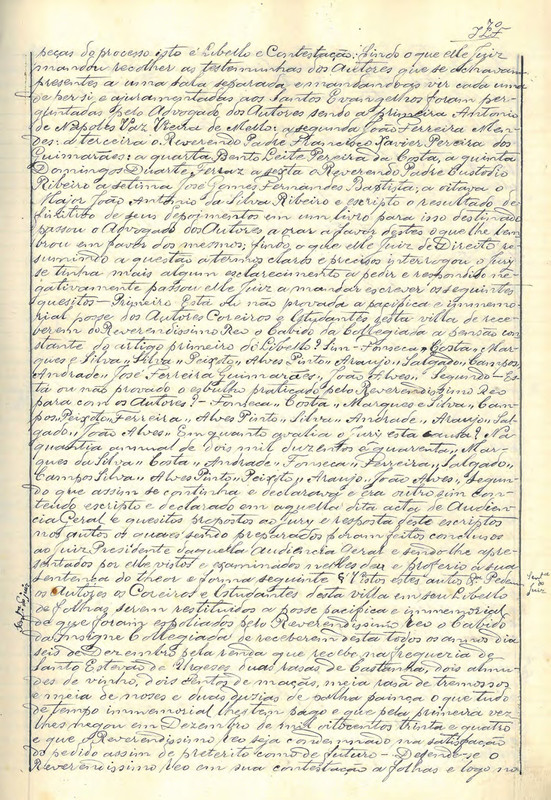 peças do processo isto é Libello e Contestação; findo o que elle Juiz
mandou recolher as testeminhas dos Autores que se achavam
presentes a uma sala separada, e mandando-as vir cada uma
de per si, e ajuramentadas aos Santos Evangelhos foram per-
guntadas pelo Advogado dos Autores sendo a primeira Antonio
de Napoles Vaz Vieira de Mello; a segunda João Ferreira Men-
des; a terceira o Reverendo Padre Francisco Xavier Pereira dos
Guimarães; a quarta Bento Leite Pereira da Costa, a quinta
Domingos Duarte Ferraz a sexta o Reverendo Padre Custodio
Ribeiro a setima José Gomes Fernandes Baptista; a oitava o
Major João Antonio da Silva Ribeiro e escripto o resultado de-
finitivo de seus depoimentos em um livro para isso destinado
passou o Advogado dos Autores a orar a favor destes o que lhe lem
brou em favor dos mesmos; findo, o que elle Juiz de Direito re-
sumindo a questão a termos claros e precisos interrogou o Jury
se tinha mais algum esclarecimento a pedir e respondido ne-
gativamente passou elle Juiz a mandar escrever os seguintes
quesitos — Primeiro Está ou não provada a pacifica e immemo-
rial posse dos Autores Coreiros e Estudantes desta villa de rece-
berem do Reverendissimo Reo o Cabido da Collegiada a pensão con
stante do artigo primeiro do Libello? Sim — Fonseca,, Costa,, Mar-
ques e Silva,, Silva,, Peixoto,, Alves Pinto,, Araujo,, Salgado,, Campos,
Andrade,, José Ferreira Guimarães,, João Alves,, Segundo — Es-
tá ou não provado o esbulho praticado pelo Reverendissimo Reo
para com os Autores? — Fonseca,, Costa,, Marques e Silva,, Cam-
pos,, Peixoto,, Ferreira,, Alves Pinto,, Silva,, Andrade,, Araujo,, Sal-
gado,, João Alves,, Em quanto avalia o Juri esta causa? Na
quantia annual de dois mil duzentos e quarenta,, Mar-
ques da Silva,, Costa,, Andrade,, Fonseca,, Ferreira,, Salgado,,
Campos Silva,, Alves Pinto,, Peixoto,, Araujo,, João Alves,, Segun-
do que assim se continha e declarava e era outro sim con-
teudo escripto e declarado em aquella dita acta de Audien-
cia Geral e quesitos propostos ao Jury e resposta deste escriptos
nos autos os quaes sendo preparados foram feitos conclusos
ao Juiz Presidente daquella Audiencia Geral e sendo-lhe apre-
sentados por elle vistos e examinados nelles deu e proferio a sua
sentença do theor e forma seguinte § Vistos estes autos & Pedem
os Autores os Coreiros e Estudantes desta villa em seu Libello
de folhas serem restituidos a posse pacifica e immemorial
de que foram espoliados pelo Reverendissimo Reo o Cabido
da Insigne Collegiada, de receberem desta todos os annos dia
seis de Dezembro pela renda que recebe na freguezia de
Santo Estevão de Urgeses duas rasas de Castanha, dois almu-
des de vinho, dois Centos de maçãs, meia rasa de tremossos
e meia de noses e duas duzias de palha painça o que tudo
de tempo immemorial lhes tem pago e que pela primeira vez
lhes negou em Dezembro de mil oitocentos trinta e quatro
e que o Reverendissimo Reo seja condemnado na satisfação
do pedido assim de preterito como de futuro — Defende-se o
Reverendissimo Reo em sua contestação a folhas e logo na